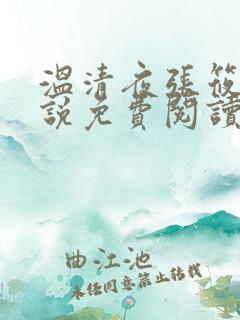 溫清夜張筱
說免費閱讀
曲江池
未经同意禁止转载